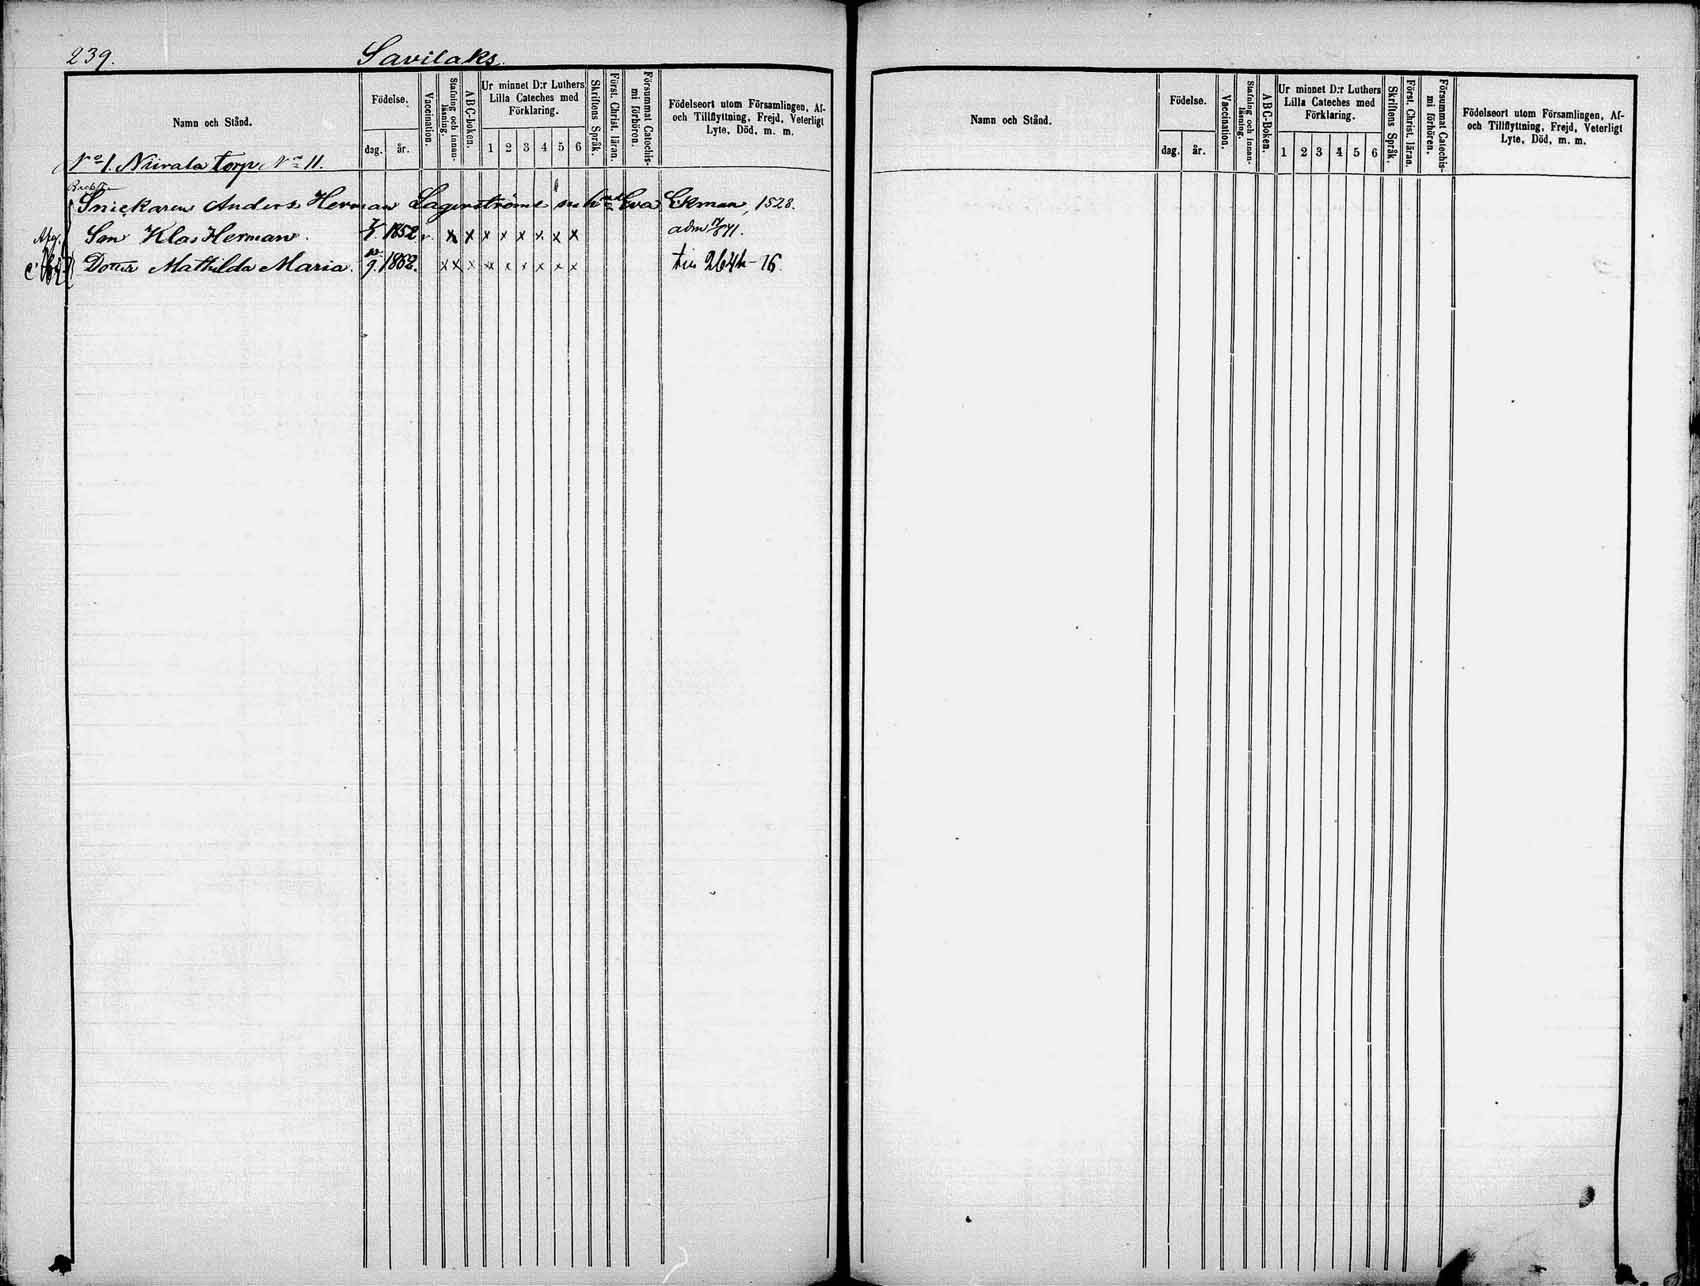 239. Savilaks.
Namn och Stånd.
Födelse.
dag. år.
Vaccination.
Stafning och innan-läsning.
ABC-boken.
Ur minnet D:r Luthers Lilla Cateches med Förklaring.
1 2 3 4 5 6
Skriftens Språk.
Först. Christ. läran.
Försummat Catechis-mi förhören.
Födelseort utom Församlingen, Af- och Tillflyttning, Frejd, Veterligt Lyte, Död, m. m.
No 1. Niirala Torp No 11.
Snickaren Anders Herman Lagerströms och h Eva Ekman, 1528.
Son Klas Herman. 1852. v. x x x x x x x x adm 871.
Dotter Mathilda Maria. 1862. x x x x x x x x x 264 - 16.
Namn och Stånd.
Födelse.
dag. år.
Vaccination.
Stafning och innan-läsning.
ABC-Boken.
Ur minnet D:r Luthers Lilla Cateches med Förklaring.
1 2 3 4 5 6
Skriftens Språk.
Först. Christ. läran.
Försummat Catechis-mi förhören.
Födelseort utom Församlingen, Af- och Tillflyttning, Frejd, Veterligt Lyte, Död, m. m.